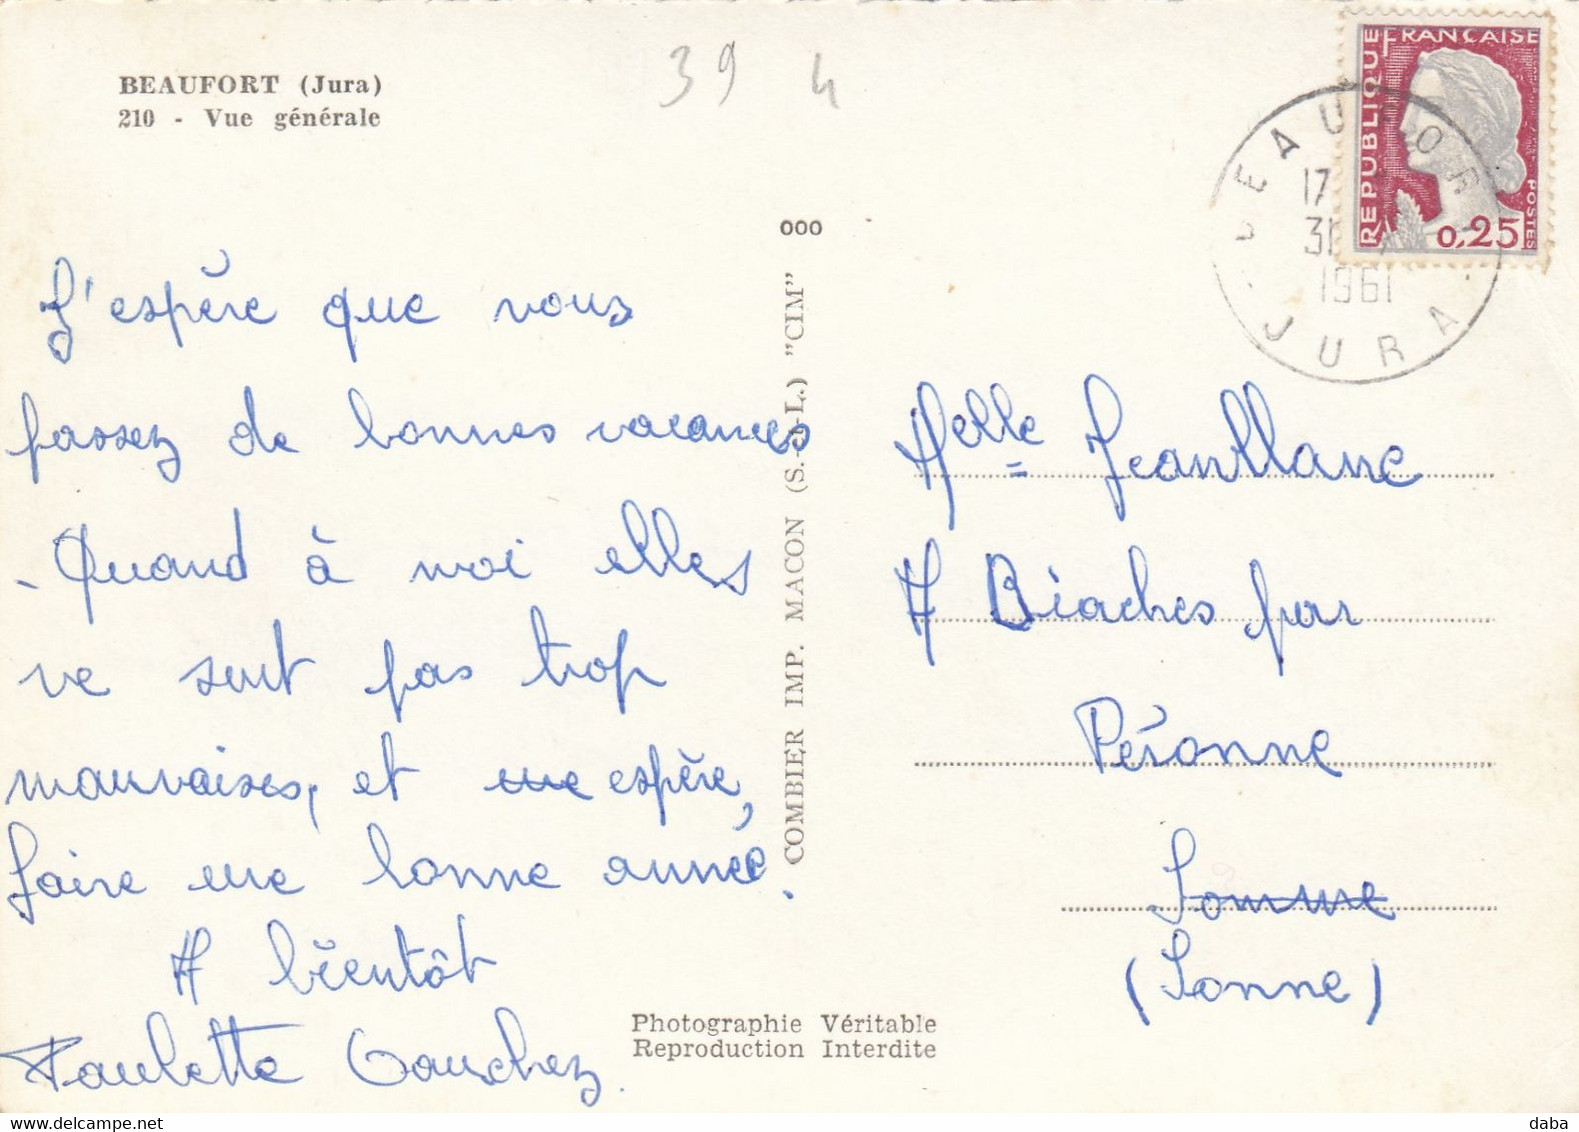 BEAUFORT (Jura)
210 - Vue générale
39 4
REPUBLIQUE FRANÇAISE
POSTES
0,25
BEAUFORT
17
31
1961
JURA
000
J'espère que vous
passez de bonnes vacances
- Quand à moi elles
ne sont pas trop
mauvaises, et espère,
faire une bonne année.
A bientôt
Paulette Gauchez.
COMBIER IMP. MACON (S.-&-L.) "CIM"
Photographie Véritable
Reproduction Interdite
Melle Jeanblanc
A Biaches par
Péronne
Somme
(Somme)
daba